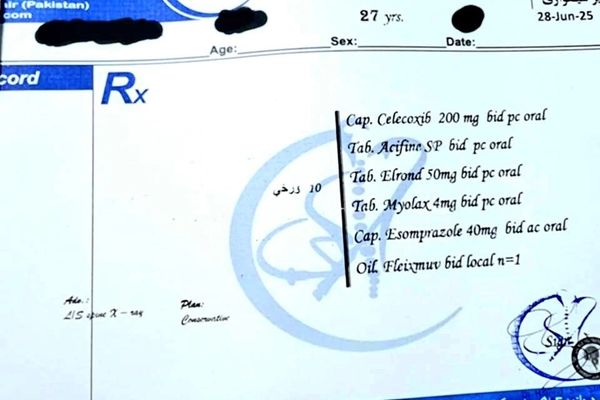 (Pakistan)
com
27 yrs.
28-Jun-25
Age:
Sex:
Date:
cord
Rx
Cap. Celecoxib 200 mg bid pc oral
Tab. Acifine SP bid pc oral
Tab. Elrond 50mg bid pc oral
10 ورځي
Tab. Myolax 4mg bid pc oral
Cap. Esomprazole 40mg bid ac oral
Oil. Fleixmuv bid local n=1
Adv.:
L/S spine X - ray
Plan:
Conservative
Sign